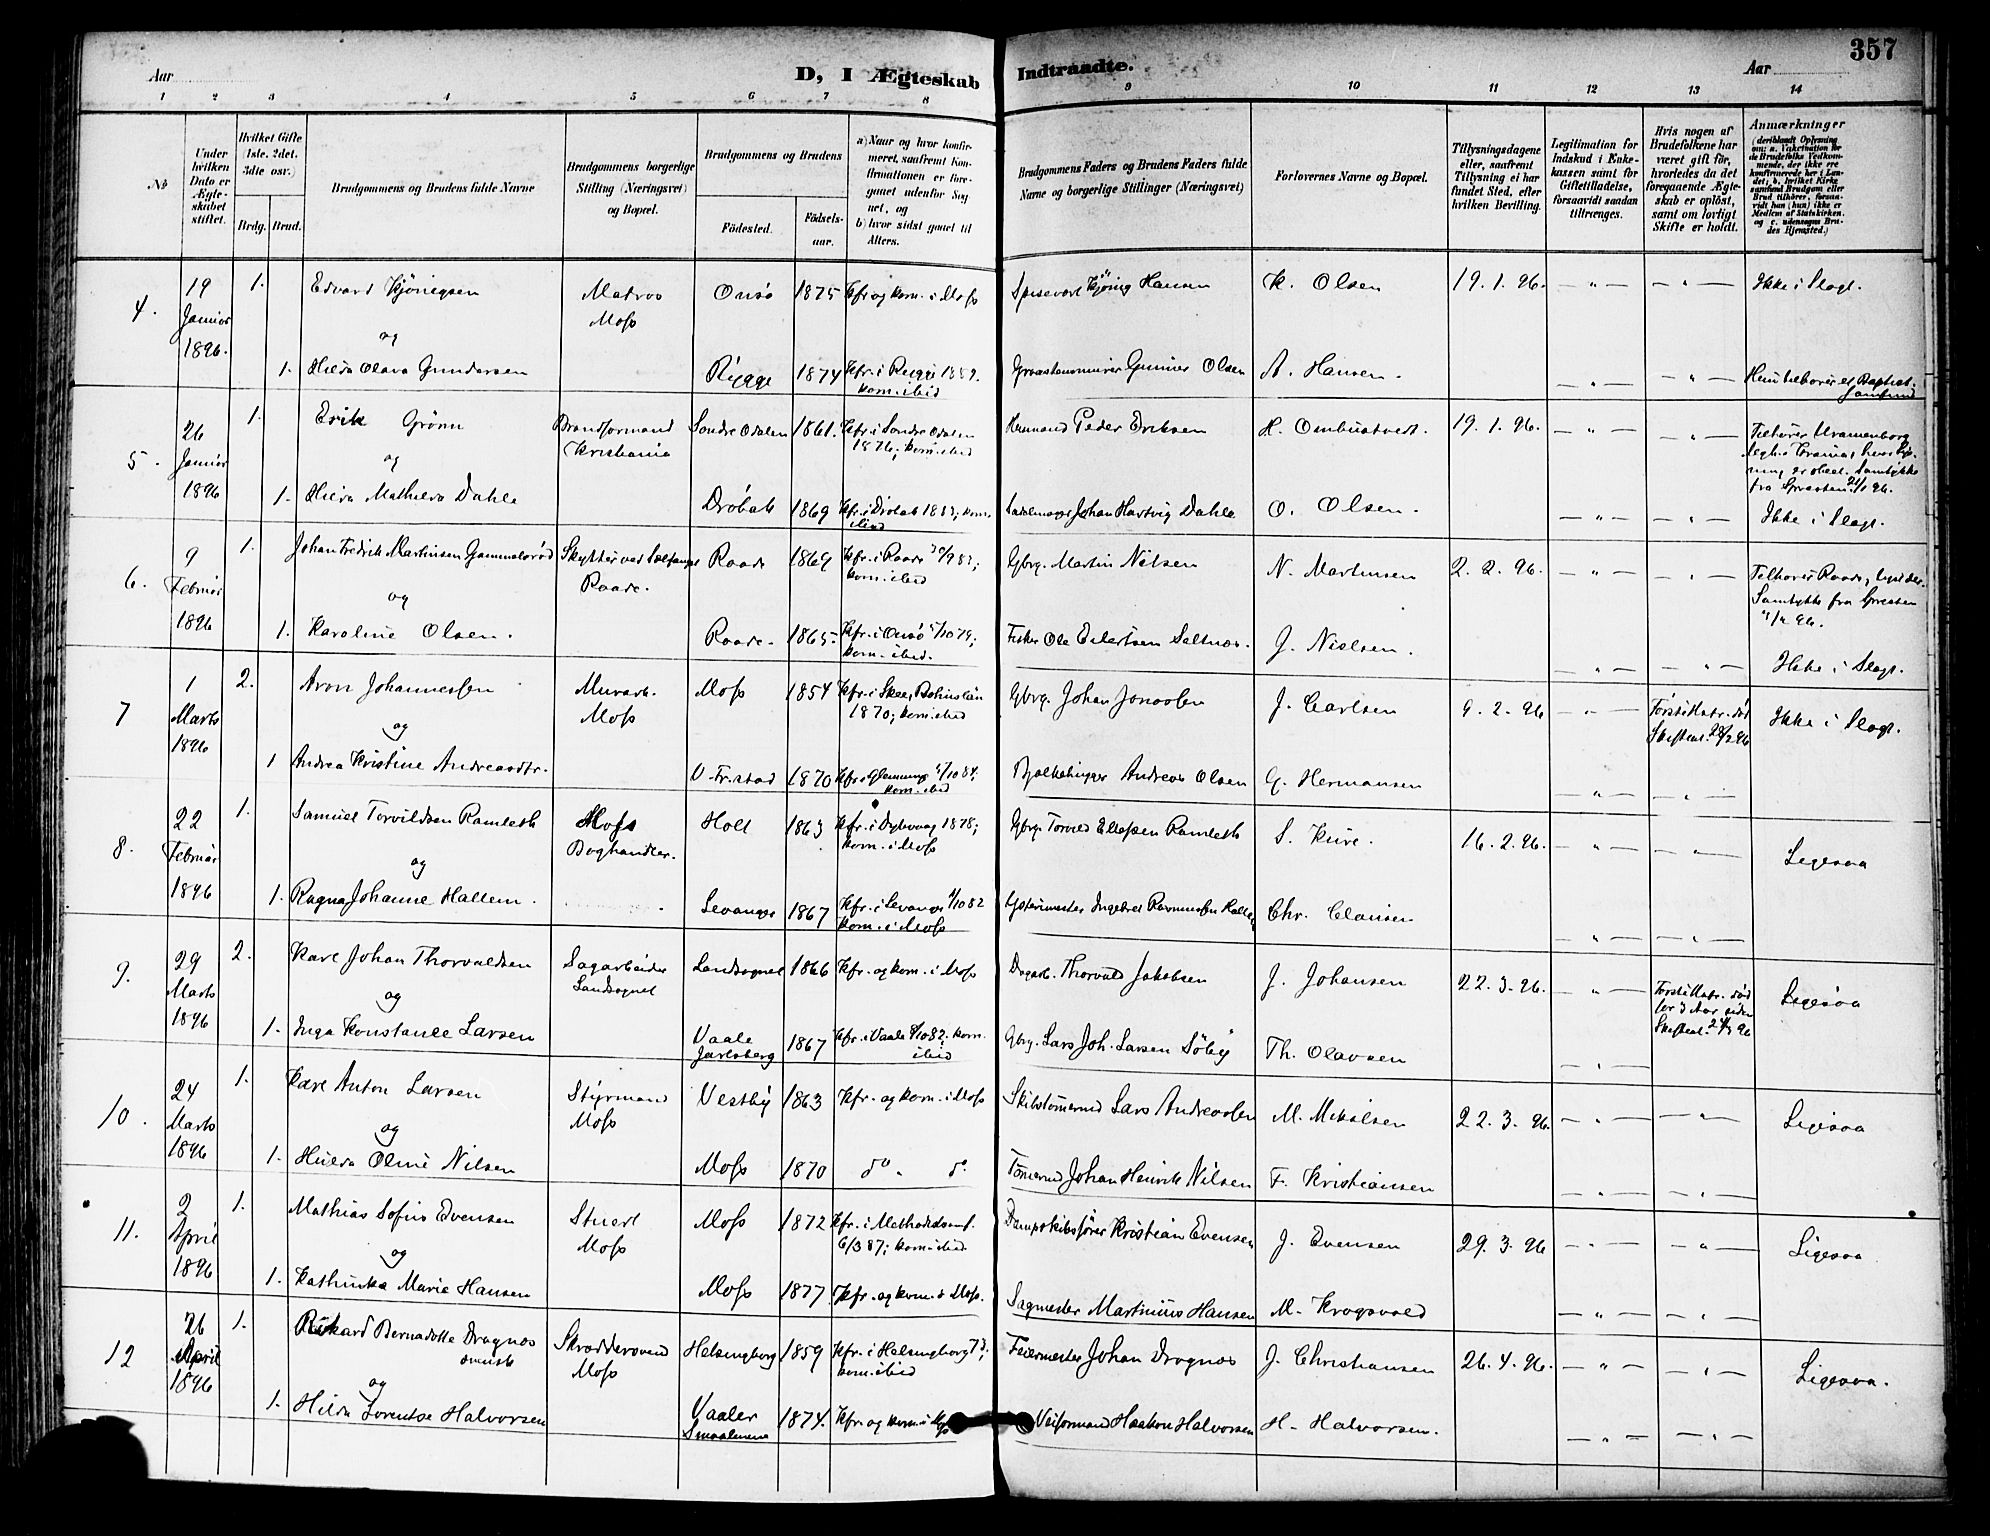 357
Aar
D, I Ægteskab
Indtraadte.
Aar
1 2 3 4 5 6 7 8 9 10 11 12 13 14
No
Under hvilken Dato er Ægteskabet stiftet.
Hvilket Gifte (1ste. 2det. 3die osv.)
Brdg. Brud.
Brudgommens og Brudens fulde Navne
Brudgommens borgerlige Stilling (Næringsvei) og Bopæl.
Brudgommens og Brudens
Födested.
Födsels-aar.
a) Naar og hvor konfirmeret, saafremt Konfirmationen er foregaaet udenfor Sognet, og
b) hvor sidst gaaet til Alters.
Brudgommens Faders og Brudens Faders fulde Navne og borgerlige Stillinger (Næringsvei)
Forlovernes Navne og Bopæl.
Tillysningsdagene eller, saafremt Tillysning ei har fundet Sted, efter hvilken Bevilling.
Legitimation for Indskud i Enkekassen samt for Giftetilladelse, forsaavidt saadan tiltrænges.
Hvis nogen af Brudefolkene har været gift för, hvorledes da det foregaaende Ægteskab er oplöst, samt om lovligt Skifte er holdt.
Anmærkninger
4. 19 Januar 1896. 1. Edvard Kjönigsen Matros Moss Onsö 1875 Kfr. og kom. i Moss Spisevert Kjönig Hansen K. Olsen 19.1.96. Ikke i Slægt.
og
1. Hilda Olava Gundersen Rygge 1874 Kfr. i Rygge 1889. kom. ibid Gunner Olsen A. Hansen.
5. 26 Januar 1896 1. Erik Grönn Brandformand Kristiania Söndre Odalen 1861. Kfr. i Söndre Odalen 1876; kom. ibid Husmand Peder Eriksen H. 19.1.96.
og
1. Hilda Mathilda Dahle Dröbak 1869 Kfr. i Dröbak 1883; kom. ibid Johan Hartvig Dahle O. Olsen. Ikke i Slægt.
6. 9 Februar 1896 1. Johan Fredrik Martinsen Gammelsröd Raade. Raade 1869 Kfr. i Raade kom. ibid Gbrg. Martin Nilsen N. Martinsen 2.2.96. Samtykke fra Presten
og
1. Karoline Olsen. Raade. 1865. Kfr. i Onsö kom. ibid. Fisker Ole Eilertsen Saltnes. J. Nielsen. Ikke i Slægt.
7 1 Marts 1896 2. Aron Johannessen Murarb. Moss Moss 1854 Kfr. i Skee, Bohuslän 1870; kom. ibid Gbrg. Johan Jonassen J. Carlsen 9.2.96 Ikke i Slægt.
og
1 Andrea Kristine Andreasdtr. V. Fr.stad 1870 kom. ibid Andreas Olsen G. Hermansen
8. 22 Februar 1896 1. Samuel Torvildsen Ramleth Moss Boghandler. Holt 1863 Kfr. i Dybvaag 1878; kom. i Moss Gbrg. Torvild Ellefsen Ramleth S. Kure. 16.2.96. Ligesaa
og
1. Ragna Johanne Hallem. Levanger 1867 Kfr. i Levanger kom. i Moss Chr. Clausen
9. 29 Marts 1896 2. Karl Johan Thorvaldsen Sagarbeider Landsognet Landsognet 1866 Kfr. og kom. i Moss Thorvald Jakobsen J. Johansen 22.3.96. Ligesaa
og
1. Inga Konstance Larsen Vaale Jarlsberg 1867 Kfr. i Vaale kom. ibid Gbrg. Lars Joh. Larsen Söby Th. Olavsen
10. 24 Marts 1896 1. Karl Anton Larsen Styrmand Moss Vestby 1863 Kfr. og kom. i Moss Lars Andreassen M. Mikalsen 22.3.96. Ligesaa
og
1. Hulda Oline Nilsen Moss 1870 do. do. Tömmermd Johan Henrik Nilsen F. Kristiansen
11. 2 April 1896 1. Mathias Sofus Evensen Stuert Moss Moss 1872 Kfr. i Methodistsamf. 6/3 87; kom. ibid Dampskibsförer Kristian Evensen J. Evensen 29.3.96 Ligesaa
og
1. Kathinka Marie Hansen Moss 1877 Kfr. og kom. i Moss. Sagmester Martinius Hansen M. Krogsvold
12 26 April 1896 1. Rikard Bernadotte Dragnos svensk Skræddersvend Moss Helsingborg 1859 Kfr. i Helsingborg 73; kom. ibid Feiermester Johan Dragnos J. Christiansen 26.4.96. Ligesaa.
og
1. Hilda Lorentse Halvorsen Vaaler Smaalenene 1874. Kfr. og kom. i Moss Veiformand Haakon Halvorsen H. Halvorsen.